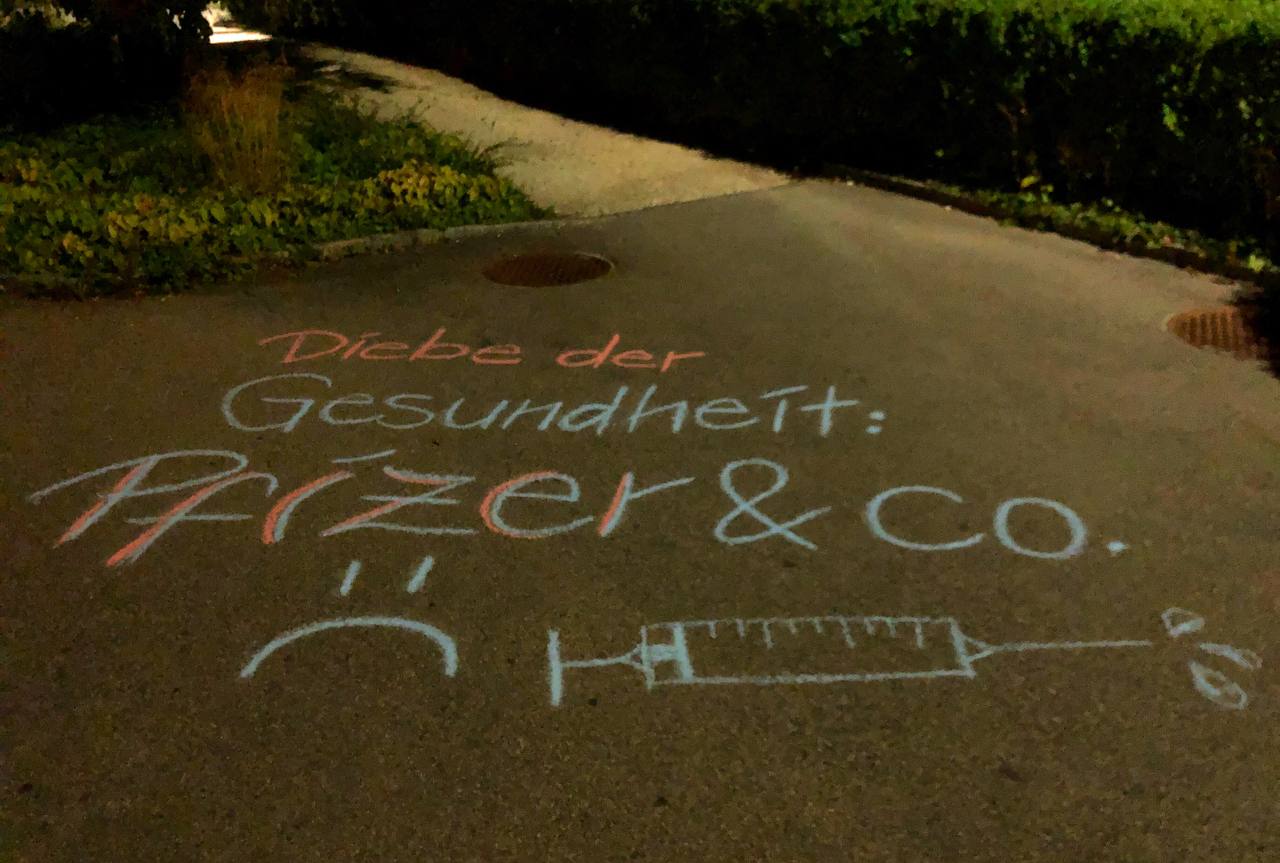 Diebe der
Gesundheit:
Pfizer & Co.